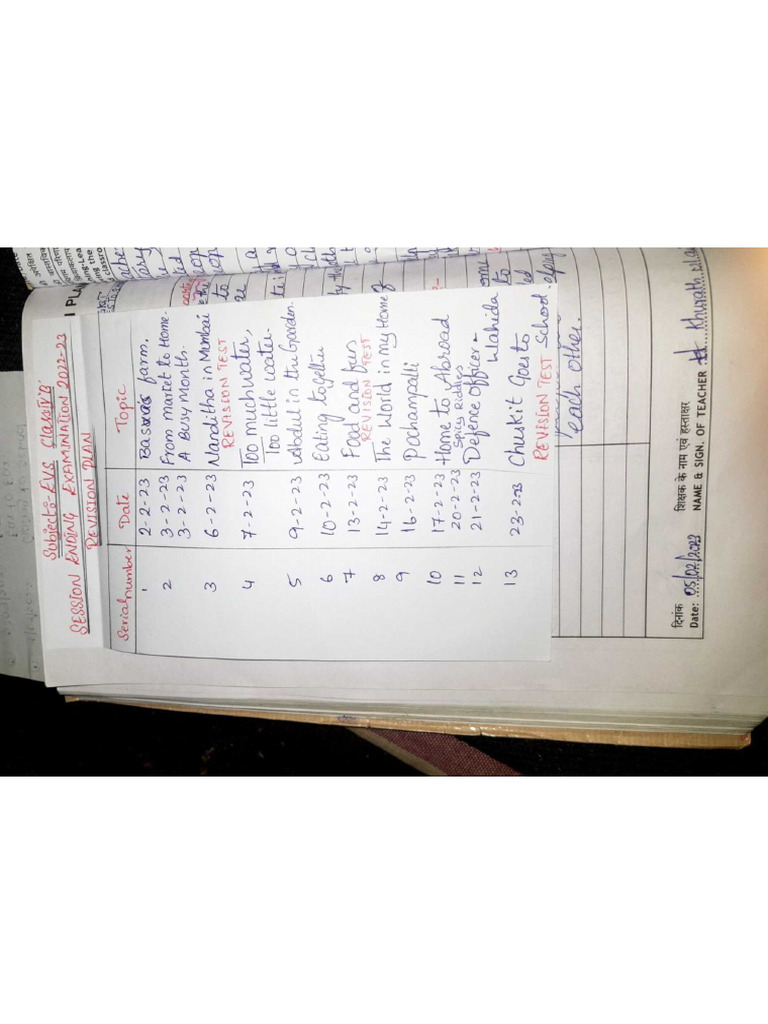 Subject:- EVS Class:- IV
SESSION ENDING EXAMINATION 2022-23
REVISION PLAN
Serial number Date Topic
1 2-2-23 Basva's farm.
2 3-2-23 From market to Home.
3-2-23 A Busy Month.
3 6-2-23 Nanditha in Mumbai
REVISION TEST
4 7-2-23 Too much water,
Too little water.
5 9-2-23 Abdul in the Garden.
6 10-2-23 Eating together
7 13-2-23 Food and fun
REVISION TEST
8 14-2-23 The World in my Home
9 16-2-23 Pochampalli
10 17-2-23 Home to Abroad
11 20-2-23 Spicy Riddles
12 21-2-23 Defence Officer:-
Wahida
13 23-2-23 Chuskit Goes to
School
REVISION TEST
each other.
दिनांक
Date: 05/02/2023
शिक्षक के नाम एवं हस्ताक्षर
NAME & SIGN. OF TEACHER